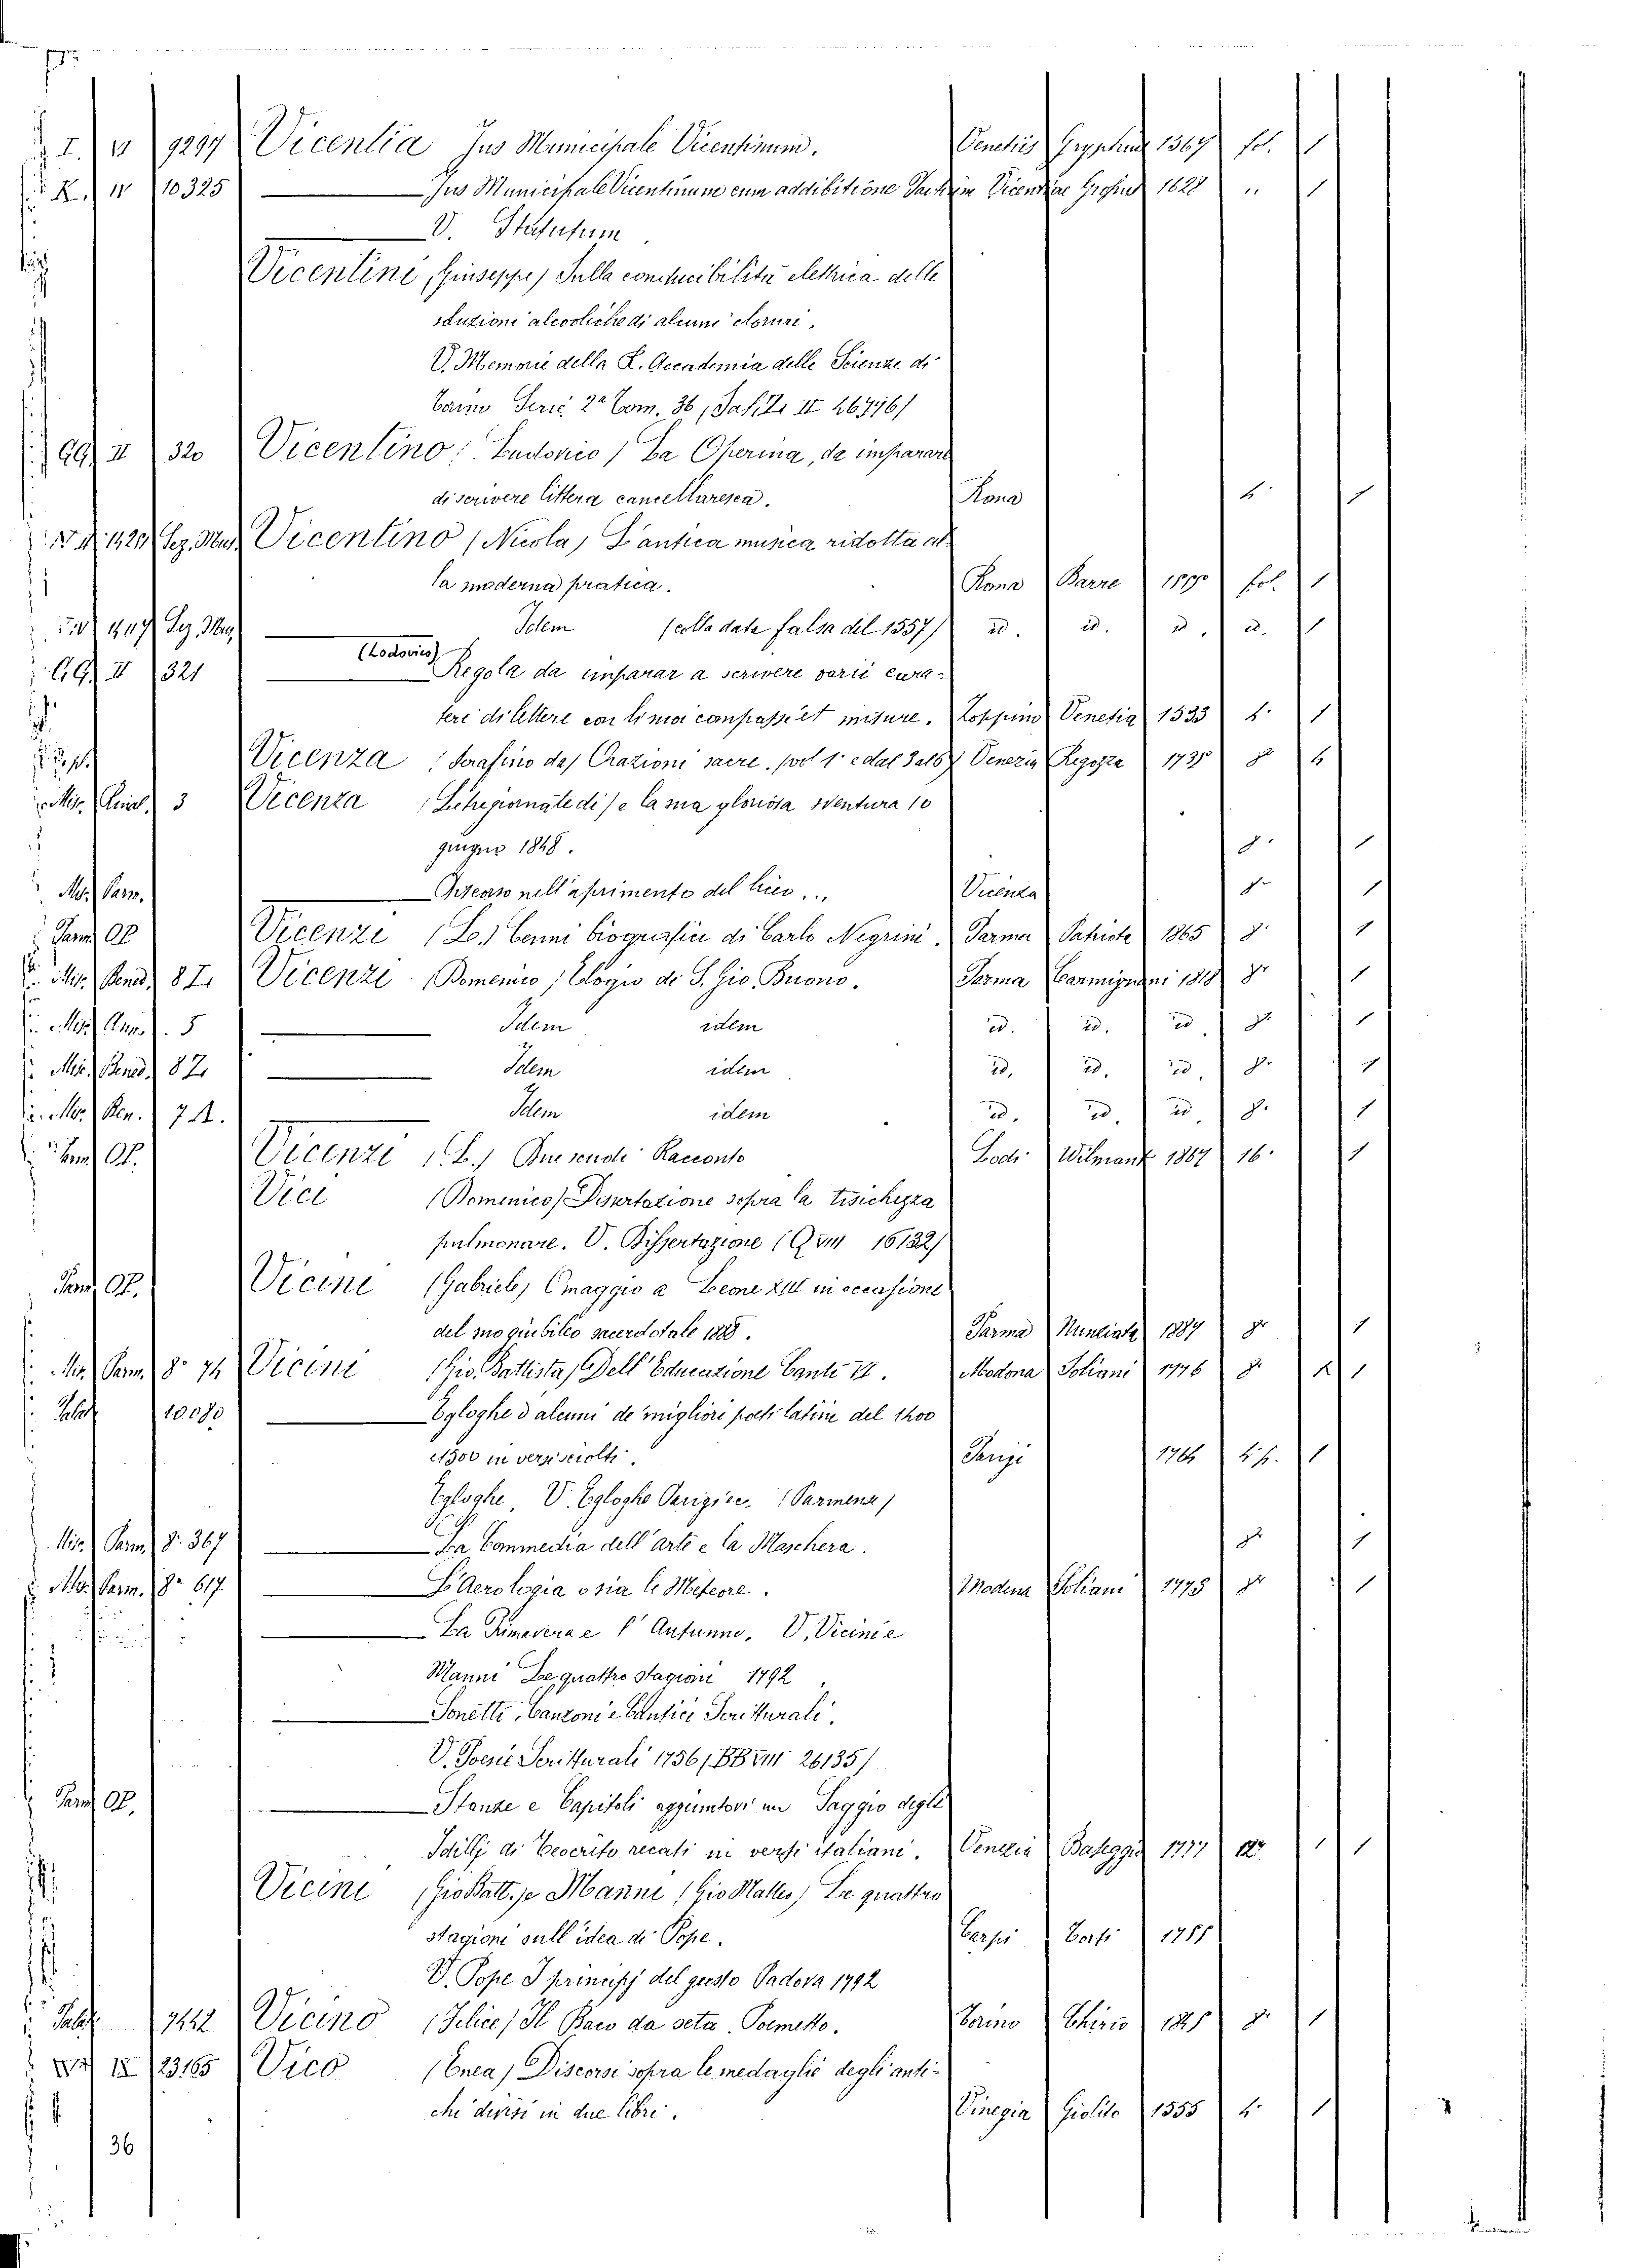 I. VI 9297 Vicentia Jus Municipale Vicentinum. Venetiis Gryphius 1567 fol. 1
K. IV 10325 Jus Municipale Vicentinum cum additione Vicentiae Grossus 1628 " 1
V. Statutum
Vicentini (Giuseppe) Sulla conducibilità elettrica delle
soluzioni alcooliche di alcuni cloruri.
V. Memorie della R. Accademia delle Scienze di
Torino Serie 2a Tom. 36 (Sal. Z. II 26796)
GG II 320 Vicentino (Ludovico) La Operina, da imparare
di scrivere littera cancellaresca. Roma 4. 1
1429 Sez. Mus. Vicentino (Nicola) L'antica musica ridotta al
la moderna pratica. Roma Barre fol. 1
Sez. Mus. Idem (colla data falsa del 1557) id. id. id. id. 1
GG II 321 (Lodovico) Regola da imparar a scrivere varii cara-
teri di lettere con li moi compassi et misure. Zoppino Venetia 1533 4. 1
Vicenza (Serafino da) Orazioni sacre. vol 1. e dal 3 al 6 Venezia 8o
3 Vicenza Le tre giornate di) e la sua gloriosa sventura 10
giugno 1848. 8. 1
Mis. Parm. nell'aprimento del liceo... Vicenza 8o 1
Parm OP Vicenzi (L.) Cenni biografici di Carlo Negrini. Parma 1865 8. 1
Mis. Bened. 87. Vicenzi (Domenico) Elogio di S. Gio. Buono. Parma Carmignani 1818 8o 1
5 Idem idem id. id. id. 8o 1
Mis. Bened. 87. Idem idem id. id. id. 8. 1
Mis. Ben. Idem idem id. id. id. 8. 1
Parm OP. Vicenzi (L.) Racconto Lodi Wilmant 1867 16. 1
Vici (Domenico) Dissertazione sopra la tisichezza
pulmonare. V. Dissertazione (Q VIII 16132)
Parm OP. Vicini (Gabriele) Omaggio a Leone XIII in occasione
del suo giubileo sacerdotale 1888. Parma Nunziata 1887 8o 1
Mis. Parm. 8o 74 Vicini (Gio. Battista) Dell'Educazione Canti II. Modona Soliani 1776 8o 1
Palat 10080 Egloghe d'alcuni de' migliori poeti latini del 1400
e 1500 in versi sciolti. Parigi 4. p. 1
Egloghe V. Egloghe Parigine. (Parmense)
Mis. Parm. 8. 367 La Commedia dell'arte e la Maschera. 8o 1
Mis. Parm. 8o 617 L'Aerologia o sia le Meteore. Modena Soliani 1775 8o 1
La Primavera e l'Autunno. V. Vicini e
Manni Le quattro stagioni 1792
Sonetti, Canzoni e Cantici Scritturali.
V. Poesie Scritturali 1756 (BB VIII 26135)
Parm OP. Stanze e Capitoli aggiuntovi un Saggio degli
Idillj di Teocrito recati in versi italiani. Venezia Baseggio 12o 1 1
Vicini (Gio Batt.) e Manni (Gio Matteo) Le quattro
stagioni sull'idea di Pope. Carpi
V. Pope I principj del gusto Padova 1792
Palat Vicino (Felice) Il Baco da seta. Poemetto. Torino Chirio 8o 1
IX 23165 Vico (Enea) Discorsi sopra le medaglie degli anti-
chi divisi in due libri. Vinegia Giolito 1555 4. 1
36